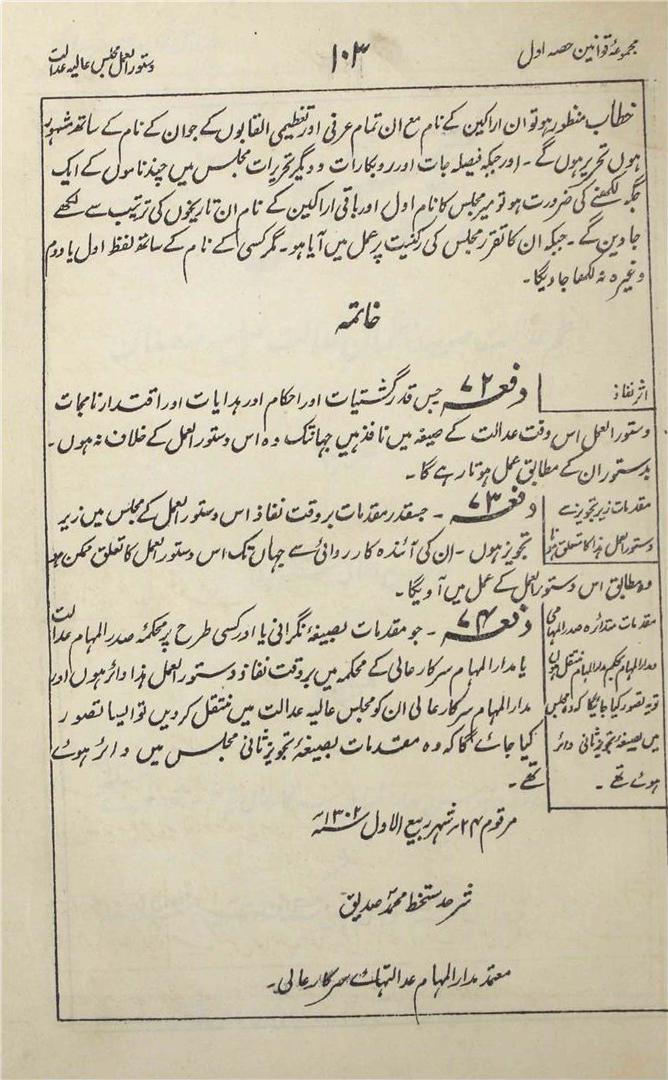 مجموعۂ قوانین حصہ اول
۱۰۳
دستور العمل مجلس عالیہ عدالت
خطاب منظور ہو تو ان اراکین کے نام مع ان تمام عرفی اور تعظیمی القابوں کے جو ان کے نام کے ساتھ مشہور
ہوں تحریر ہوں گے ۔ اور جبکہ فیصلہ جات اور روبکارات و دیگر تحریرات مجلس میں چند ناموں کے ایک
جگہ لکھنے کی ضرورت ہو تو میر مجلس کا نام اول اور باقی اراکین کے نام ان تاریخوں کی ترتیب سے لکھے
جاوین گے ۔ جبکہ ان کا تقرر مجلس کی رکنیت پر عمل میں آیا ہو ۔ مگر کسی کے نام کے ساتھ لفظ اول یا دوم
وغیرہ نہ لکھا جاویگا ۔
خاتمہ
اثر نفاذ
دفعہ ۷۲ جس قدر گشتیات اور احکام اور ہدایات اور اقتدار نامجات
دستور العمل اس وقت عدالت کے صیغہ میں نافذ ہیں جہانتک وہ اس دستور العمل کے خلاف نہ ہوں ۔
بدستور ان کے مطابق عمل ہوتا رہے گا ۔
مقدمات زیر تجویز سے
دستور العمل ہذا کا متعلق ہونا
دفعہ ۷۳ ۔ جسقدر مقدمات بر وقت نفاذ اس دستور العمل کے مجلس میں زیر
تجویز ہوں ۔ ان کی آئندہ کارروائی سے جہاں تک اس دستور العمل کا تعلق ممکن ہو
وہ مطابق اس دستور العمل کے عمل میں آویگا ۔
مقدمات متدائرہ صدر المہامی
و مدار المہام بحکم مدار المہام منتقل ہوں
تو یہ تصور کیا جائیگا کہ وہ مجلس
میں بصیغۂ تجویز ثانی دائر
ہوئے تھے ۔
دفعہ ۷۴ ۔ جو مقدمات بصیغۂ نگرانی یا اور کسی طرح پر محکمۂ صدر المہام عدالت
یا مدار المہام سرکار عالی کے محکمہ میں بر وقت نفاذ دستور العمل ہذا دائر ہوں اور
مدار المہام سرکار عالی ان کو مجلس عالیہ عدالت میں منتقل کر دیں تو ایسا تصور
کیا جائے گا کہ وہ مقدمات بصیغۂ تجویز ثانی مجلس میں دائر ہوئے
تھے ۔
مرقوم ۲۴ شہر ربیع الاول سنہ ۱۳۰۲
شرحد ستخط محمد صدیق
معتمد مدار المہام عدالتہائے سرکار عالی ۔